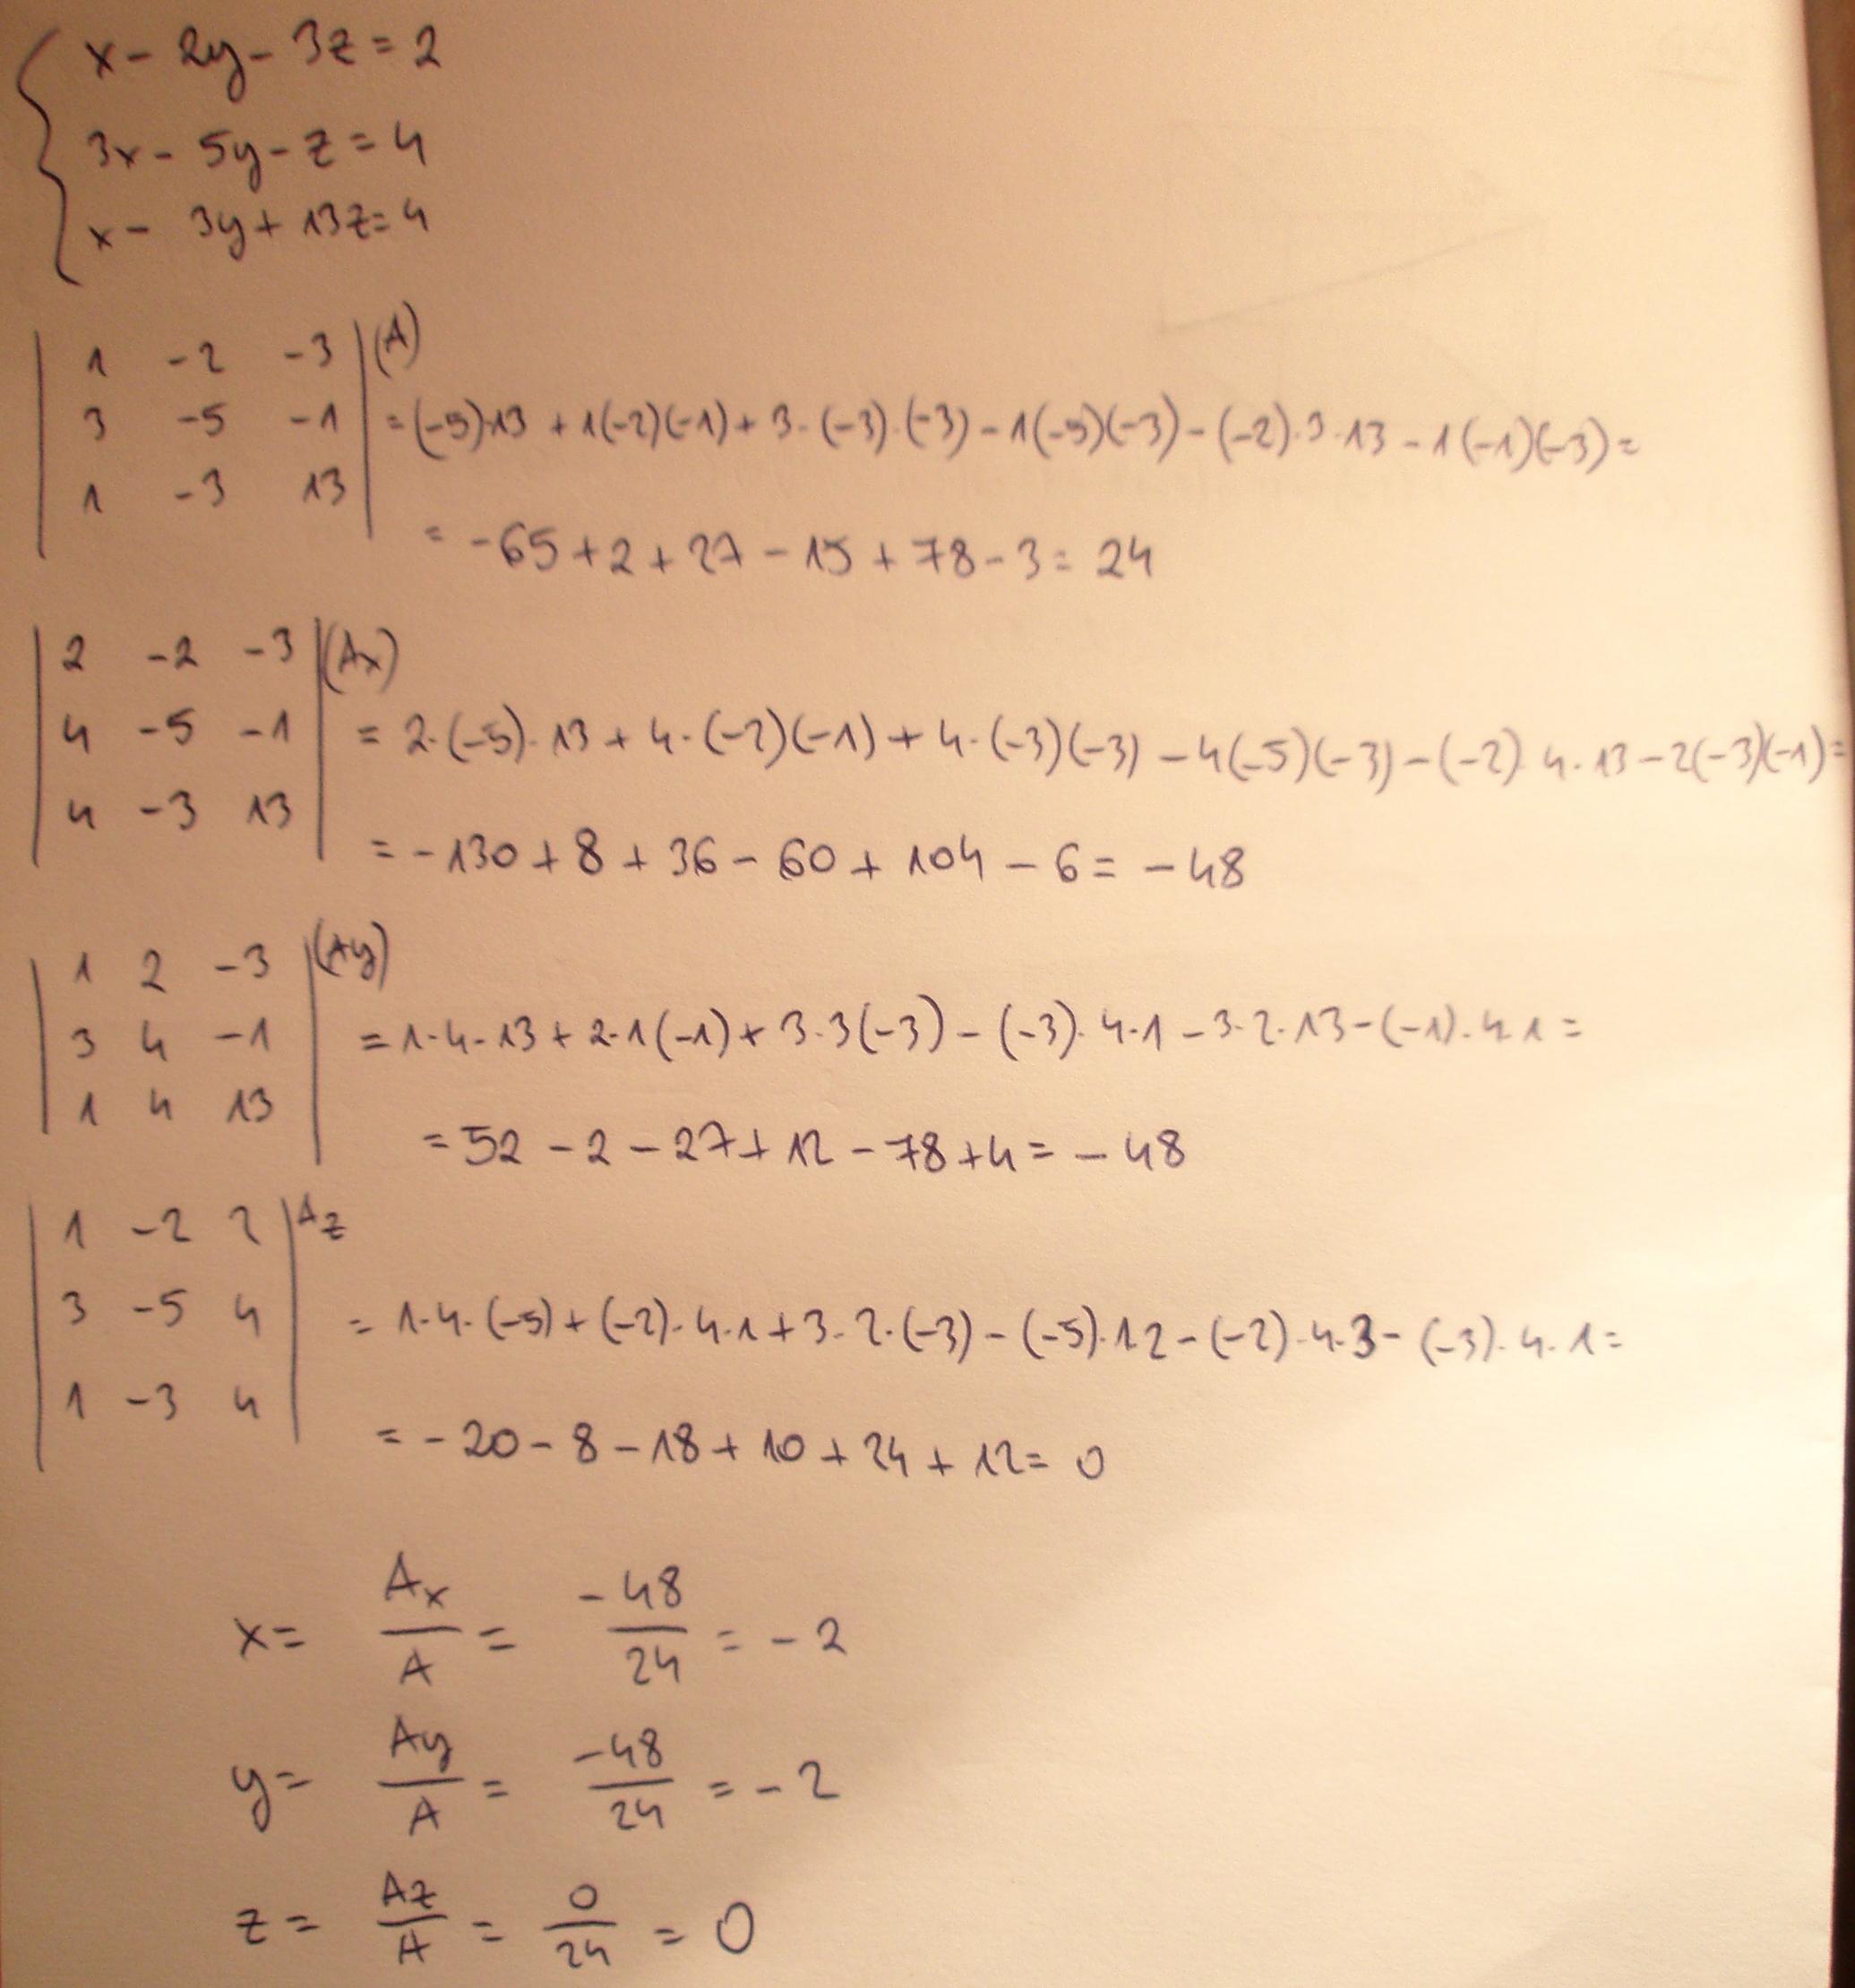 x - 2y - 3z = 2
3x - 5y - z = 4
x - 3y + 13z = 4
1 -2 -3 (A)
3 -5 -1 = (-5)·13 + 1(-2)(-1) + 3·(-3)·(-3) - 1(-5)(-3) - (-2)·3·13 - 1(-1)(-3) =
1 -3 13
= -65 + 2 + 27 - 15 + 78 - 3 = 24
2 -2 -3 (Ax)
4 -5 -1 = 2·(-5)·13 + 4·(-2)(-1) + 4·(-3)(-3) - 4(-5)(-3) - (-2) 4·13 - 2(-3)(-1) =
4 -3 13
= -130 + 8 + 36 - 60 + 104 - 6 = -48
1 2 -3 (Ay)
3 4 -1 = 1·4·13 + 2·1(-1) + 3·3(-3) - (-3)·4·1 - 3·2·13 - (-1)·4·1 =
1 4 13
= 52 - 2 - 27 + 12 - 78 + 4 = -48
1 -2 2 Az
3 -5 4 = 1·4·(-5) + (-2)·4·1 + 3·2·(-3) - (-5)·12 - (-2)·4·3 - (-3)·4·1 =
1 -3 4
= -20 - 8 - 18 + 10 + 24 + 12 = 0
x = Ax/A = -48/24 = -2
y = Ay/A = -48/24 = -2
z = Az/A = 0/24 = 0